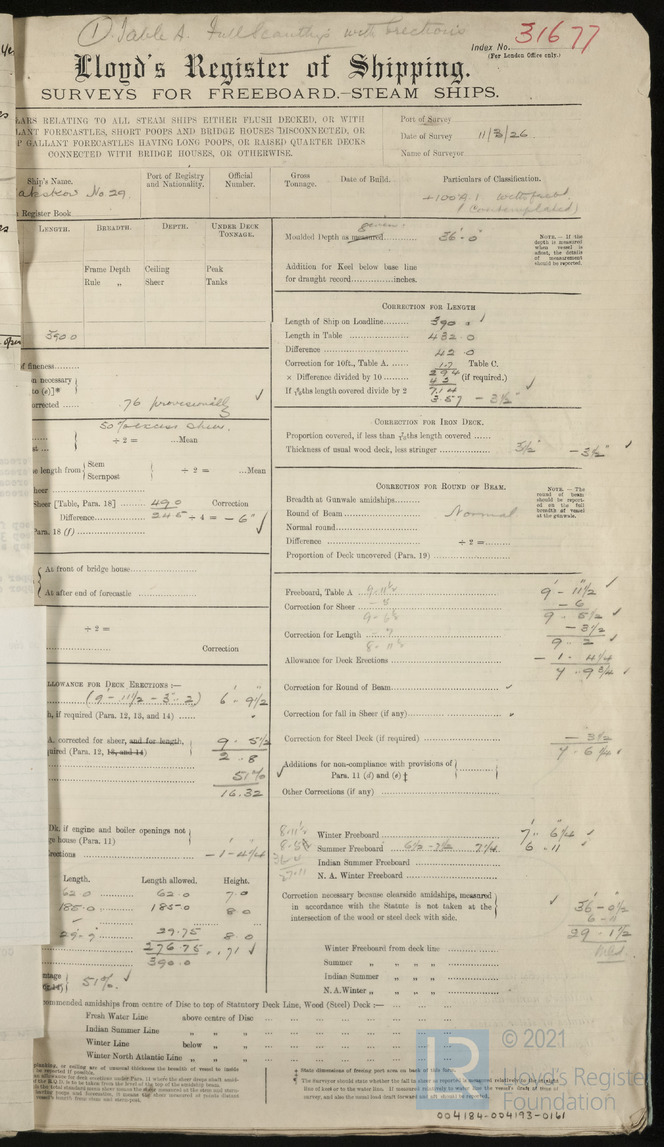 ① Table A. Full Scantlgs with Erections
Index No. 31677
(For London Office only.)
Lloyd's Register of Shipping.
SURVEYS FOR FREEBOARD.—STEAM SHIPS.
LARS RELATING TO ALL STEAM SHIPS EITHER FLUSH DECKED, OR WITH
LANT FORECASTLES, SHORT POOPS AND BRIDGE HOUSES DISCONNECTED, OR
GALLANT FORECASTLES HAVING LONG POOPS, OR RAISED QUARTER DECKS
CONNECTED WITH BRIDGE HOUSES, OR OTHERWISE.
Port of Survey
Date of Survey 11/3/26
Name of Surveyor
Ship's Name.
Port of Registry and Nationality.
Official Number.
Gross Tonnage.
Date of Build.
Particulars of Classification.
akskow No. 29
+100A.1. with freebd
(contemplated)
Register Book
LENGTH.
BREADTH.
DEPTH.
UNDER DECK TONNAGE.
Frame Depth
Ceiling
Peak
Rule "
Sheer
Tanks
390.0
of fineness
on necessary
to (e)]*
orrected ..... 76 provisionally
50% excess sheer.
÷ 2 = ...Mean
e length from
Stem
Sternpost
÷ 2 = ...Mean
heer
Sheer [Table, Para. 18] 49.0 Correction
Difference 24.5 ÷ 4 = – 6"
Para. 18 (f)
At front of bridge house
At after end of forecastle
÷ 2 =
Correction
LLOWANCE FOR DECK ERECTIONS:—
(9' - 11½ - 3 - 2) 6 - 9½
h, if required (Para. 12, 13, and 14)
A. corrected for sheer, and for length,
quired (Para. 12, 13, and 14)
9 . 5½
2 . 8
51%
16.32
Dk. if engine and boiler openings not
ge house (Para. 11)
ections – 1 - 4¼
Length.
Length allowed.
Height.
62.0 62.0 7.0
185.0 185.0 8.0
29.75 8.0
276.75 .71
390.0
ntage 51%
commended amidships from centre of Disc to top of Statutory Deck Line, Wood (Steel) Deck :—
Fresh Water Line above centre of Disc
Indian Summer Line " "
Winter Line below "
Winter North Atlantic Line " "
Moulded Depth as measured 36'.0"
given
NOTE. — If the depth is measured when vessel is afloat, the details of measurement should be reported.
Addition for Keel below base line
for draught record inches.
CORRECTION FOR LENGTH
Length of Ship on Loadline 390.0
Length in Table 432.0
Difference 42.0
Correction for 10ft., Table A. 1.7 Table C.
× Difference divided by 10 4.2 (if required.)
If 6/10ths length covered divide by 2 7.14
3.57 – 3½"
CORRECTION FOR IRON DECK.
Proportion covered, if less than 7/10ths length covered
Thickness of usual wood deck, less stringer 3½" – 3½"
CORRECTION FOR ROUND OF BEAM.
Breadth at Gunwale amidships
Round of Beam Normal
Normal round
Difference ÷ 2 =
Proportion of Deck uncovered (Para. 19)
NOTE. — The round of beam should be reported on the full breadth of vessel at the gunwale.
Freeboard, Table A 9 - 11½ 9' - 11½
Correction for Sheer – 6
9 . 5½
Correction for Length – 3½
9 . 2
Allowance for Deck Erections – 1 . 4¼
7 . 9¾
Correction for Round of Beam
Correction for fall in Sheer (if any)
Correction for Steel Deck (if required) – 3½
7 . 6¼
Additions for non-compliance with provisions of
Para. 11 (d) and (e) †
Other Corrections (if any)
Winter Freeboard 7' . 6¼"
Summer Freeboard 6½ - 7½ 7¼ 6 . 11
Indian Summer Freeboard
N. A. Winter Freeboard
Correction necessary because clearside amidships, measured
in accordance with the Statute is not taken at the
intersection of the wood or steel deck with side.
36' – 0½"
6 – 11
29 . 1½
Mld.
Winter Freeboard from deck line
Summer " " "
Indian Summer " " "
N. A. Winter " " "
© 2021
Lloyd's Register
Foundation
004184-004193-0161